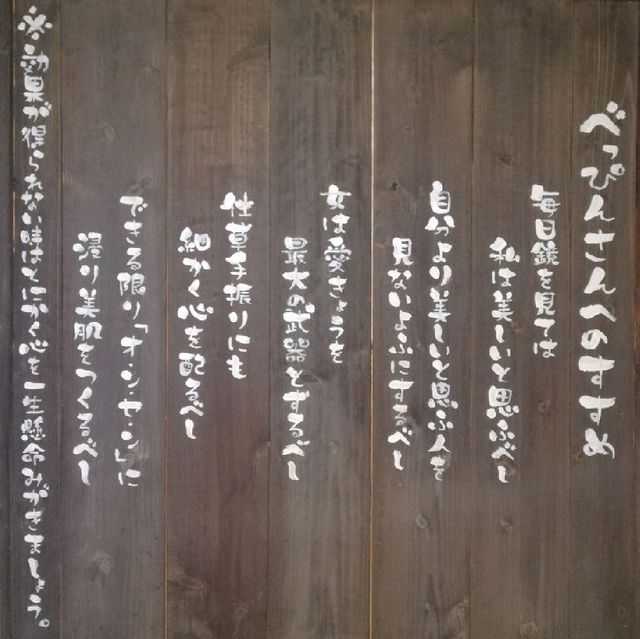 べっぴんさんへのすすめ
毎日鏡を見ては
私は美しいと思ふべし
自分より美しいと思ふ人を
見ないよふにするべし
女は愛きょうを
最大の武器とするべし
仕草手振りにも
細かく心を配るべし
できる限り「オ・ン・セ・ン」に
浸り美肌をつくるべし
※効果が得られない時はとにかく心を一生懸命みがきましょう。